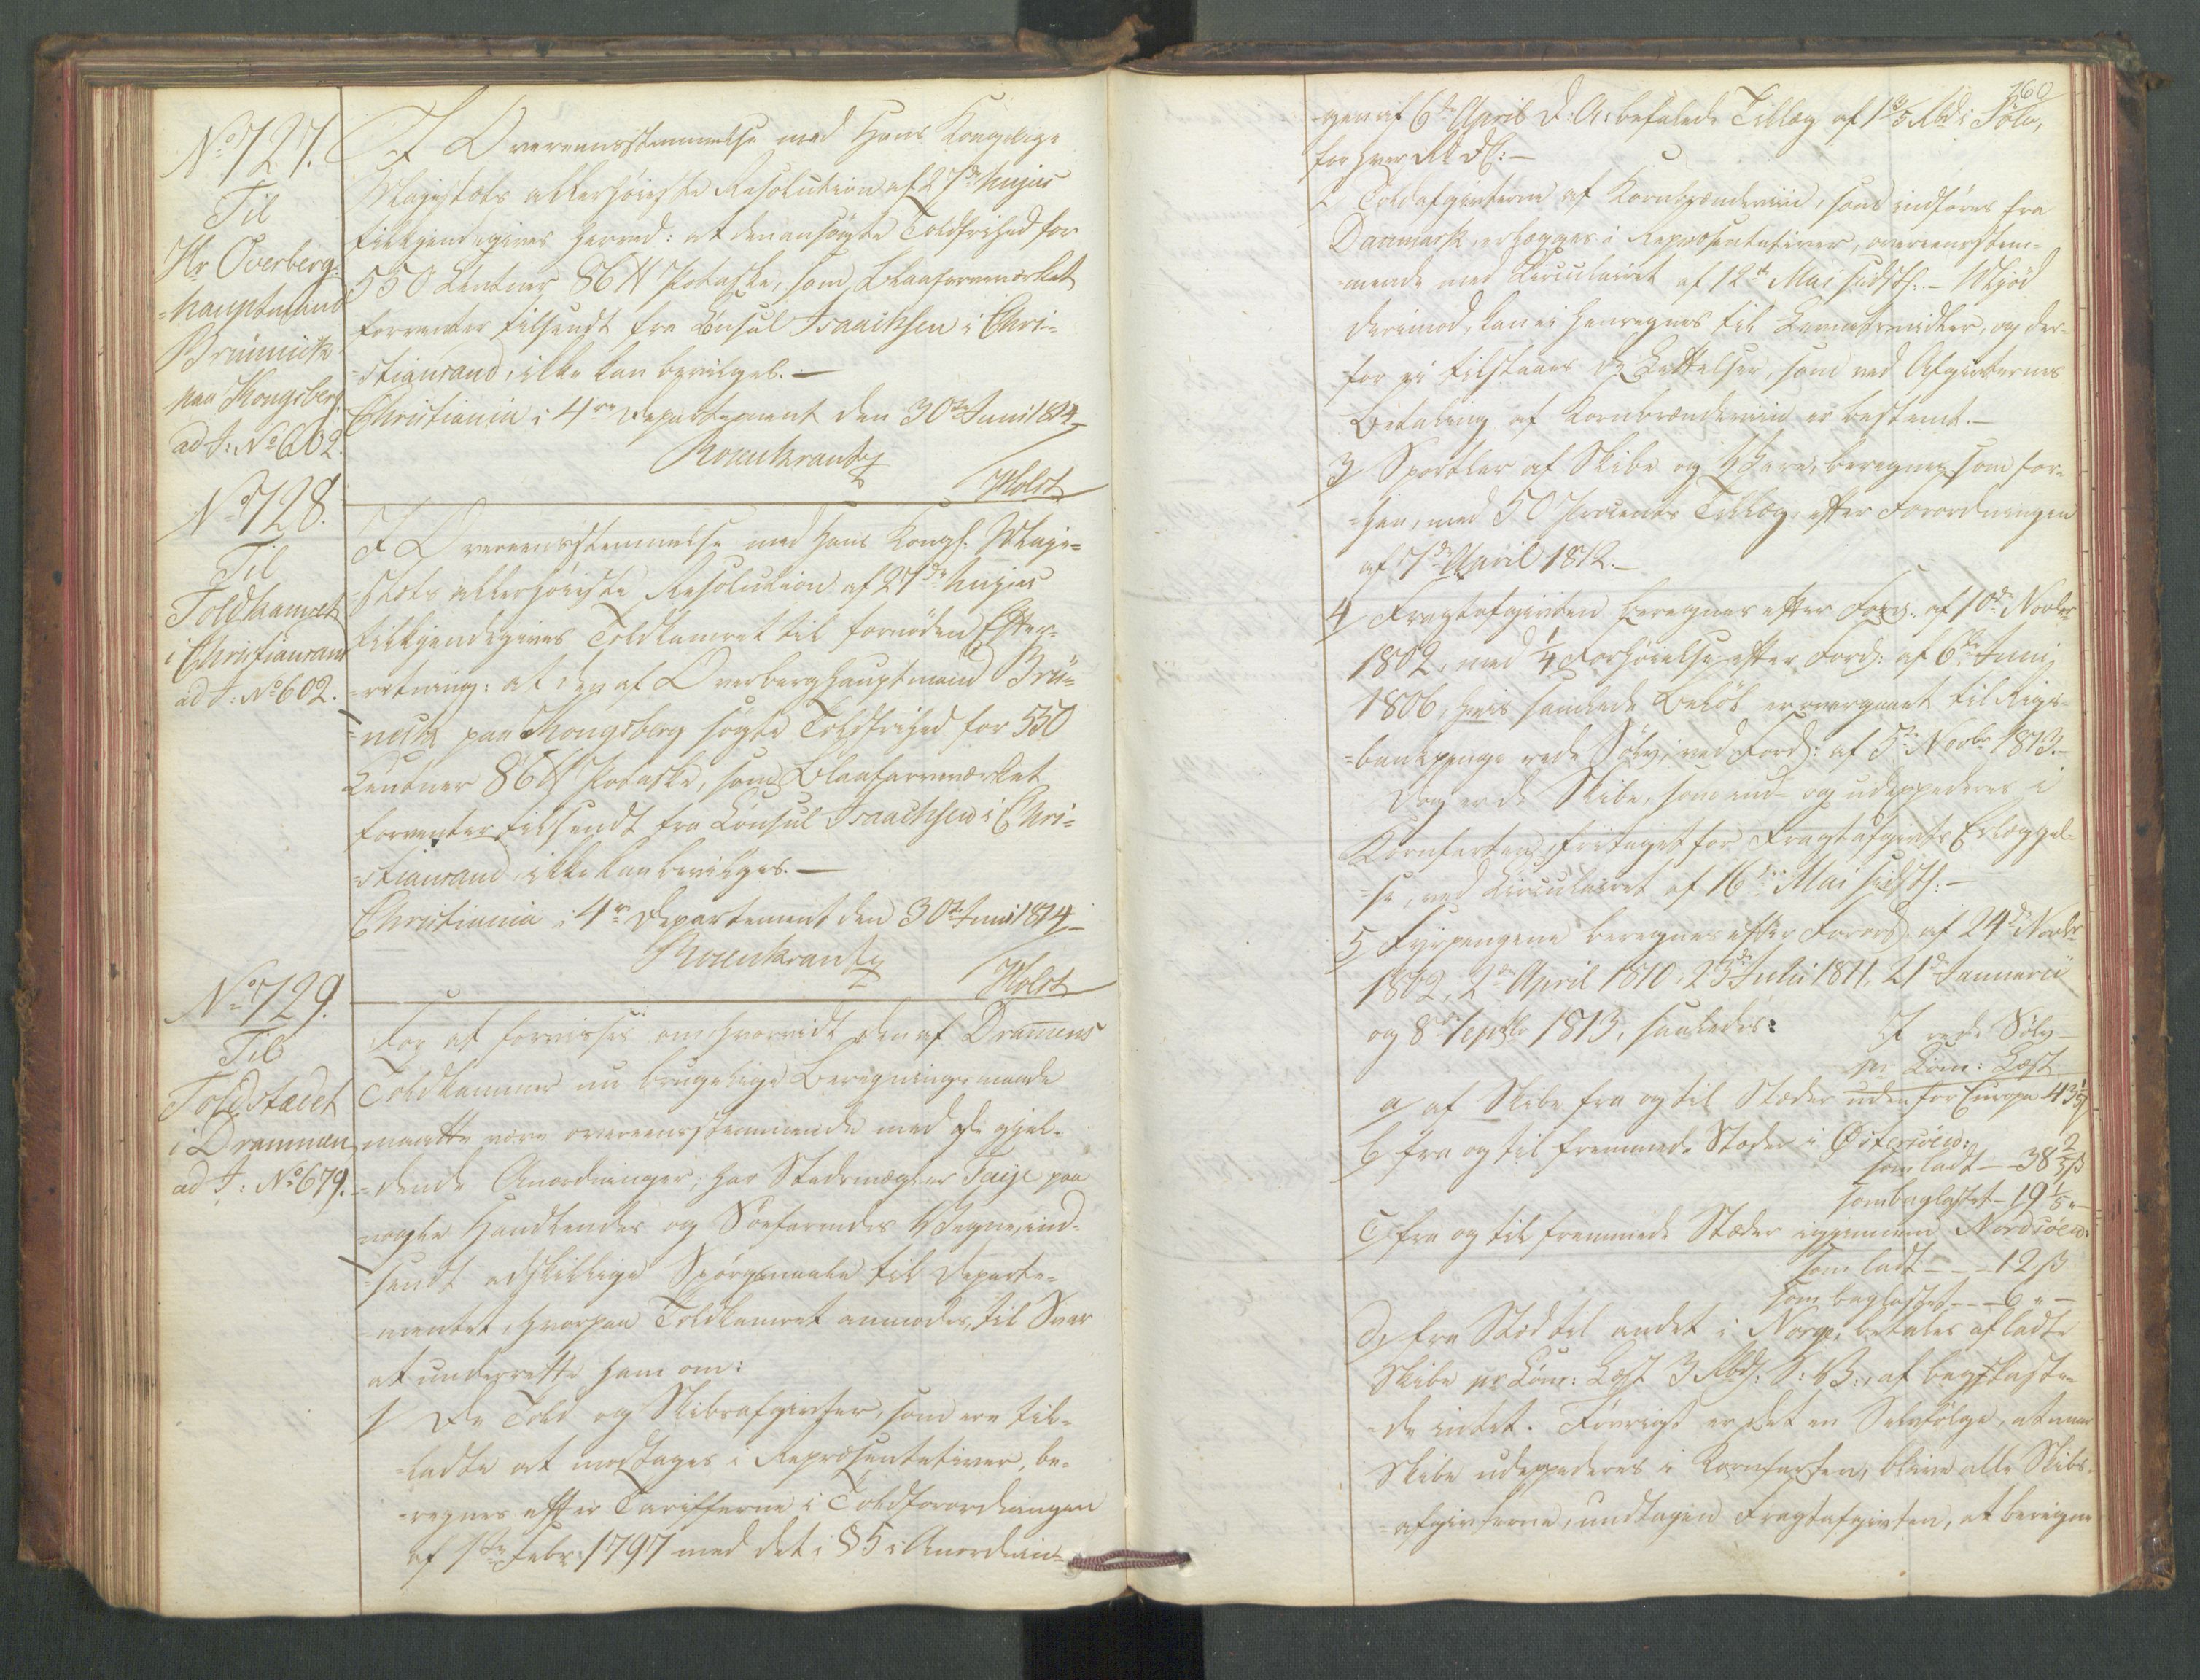 No 727.
Til
Hr Overberg-
hauptmand
Brünnick
paa Kongsberg
ad J: No 602.
I Overeensstemmelse med Hans Kongelige
Majestæts allerhøieste Resolution af 27de hujus
tilkjendegives herved: at den ansøgte Toldfrihed for
550 Centner 86 ℔ Potaske, som Blaafarveværket
forventer tilsendt fra Consul Isaachsen i Chri-
stiansand, ikke kan bevilges.—
Christiania i 4re Departement den 30te Juni 1814
Rosenkrantz
Holst
No 728.
Til
Toldkamret
i Christiansand
ad J: No 602.
I Overeensstemmelse med Hans Kongl: Maje-
stæts allerhøieste Resolution af 27de hujus
tilkjendegives Toldkamret til fornøden Efter-
retning: at den af Overberghauptmand Brü-
nick paa Kongsberg søgte Toldfrihed for 550
Centner 86 ℔ Potaske, som Blaafarveværket
forventer tilsendt fra Consul Isaachsen i Chri-
stiansand, ikke kan bevilges.—
Christiania i 4re Departement den 30te Juni 1814
Rosenkrantz
Holst
No 729.
Til
Toldstædet
i Drammen
ad J: No 679.
For at forvisses om, hvorvidt den af Dramens
Toldkammer nu brugelige Beregningsmaade
maatte være overeensstemmende med de gjel-
dende Anordninger, har Stadsmægler Faije paa
nogle Handlendes og Søefarendes Vegne, ind-
sendt adskillige Spørgsmaale til Departe-
mentet, hvorpaa Toldkamret anmodes, til Svar
at underrette ham om:
1/ De Told og Skibsafgivter, som ere til-
ladte at modtages i Repræsentativer, be-
regnes efter Tarifferne i Toldforordningen
af 1ste Febr: 1797 med det i § 5 i Anordnin-
260
gen af 6te April d: A: befalede Tillæg af 1 3/5 Rbd i Sølv,
for hver Rdl:—
2 Toldafgivterne af Kornbrændeviin, som indføres fra
Danmark, erlægges i Repræsentativer, overeensstem-
mende med Circulairet af 12te Mai sidstl:— Mjød
derimod, kan ei henregnes til Levnetsmidler, og der-
for ei tilstaaes de Lettelser, som ved Afgivternes
Betaling af Kornbrændeviin er bestemt.—
3/ Sportler af Skibe og Vare, beregnes som for-
hen, med 50 Procentes Tillæg, efter Forordningen
af 7de April 1812.—
4 Fragtafgivten beregnes efter Ford: af 10de Novbr
1802, med 1/4 Forhøielse efter Ford: af 6te Juni
1806, hvis samlede Beløb er overgaaet til Rigs-
bankpenge rede Sølv, ved Ford: af 5te Novbr 1813.—
Dog ere de Skibe, som ind- og udexpederes i
Kornfarten, fritaget for Fragtafgivts Erlæggel-
se, ved Circulairet af 16de Mai sidstl:—
5 Fyrpengene beregnes efter Forord: af 24de Novbr
1802, 2den April 1810, 23de Julii 1811, 21de Januarii
og 8de Septbr 1813, saaledes:
I rede Sølv
pr Com: Læst
a/ af Skibe fra og til Stæder uden for Europa 43 1/5 β
b fra og til fremmede Stæder i Østersøen:
som ladt — 38 2/5 β
som baglastet — 19 1/5 "—
c) fra og til fremmede Stæder igjennem Nordsøen:
som ladt — — 12 β
som baglastet — — 6 "—
d, fra Sted til andet i Norge, betales af ladte
Skibe pr Com: Læst 3 Rbs: S: V:, af baglaste-
de intet. Førrigt er det en Selvfølge, at naar
Skibe udexpederes i Kornfarten, blive alle Skibs-
afgivterne, undtagen Fragtafgivten, at beregne